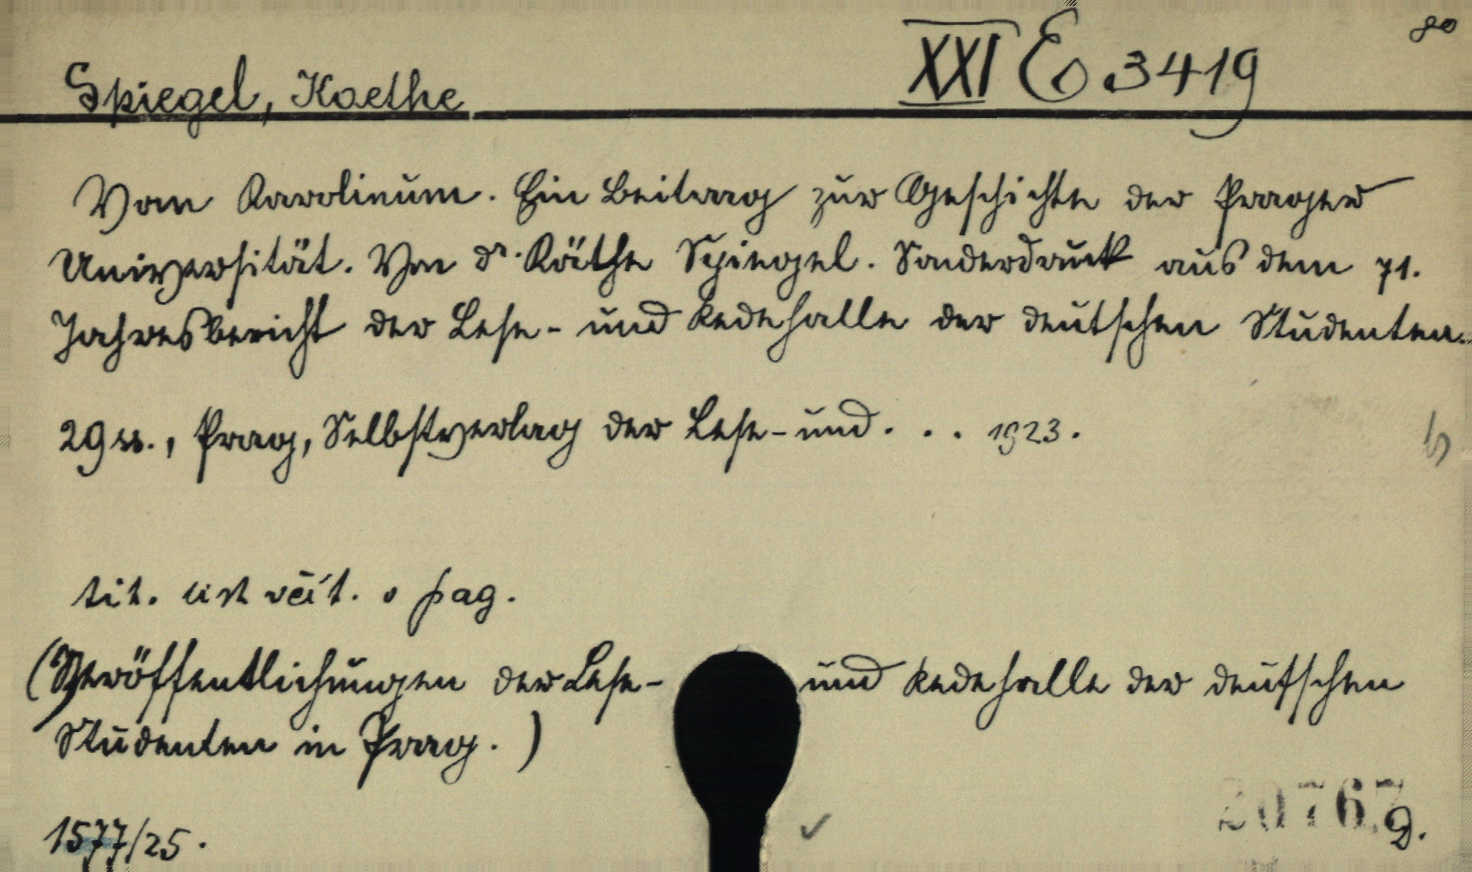 80
XXI E 3419
Spiegel, Koethe
Vom Karolinum. Ein Beitrag zur Geschichte der Prager
Universität. Von Dr. Käthe Spiegel. Sonderdruck aus dem 71.
Jahresbericht der Lese- und Redehalle der deutschen Studenten.
29 ss., Prag, Selbstverlag der Lese- und . . . 1923.
tit. list včít. v pag.
(Veröffentlichungen der Lese- und Redehalle der deutschen
Studenten in Prag.)
1577/25.
20767